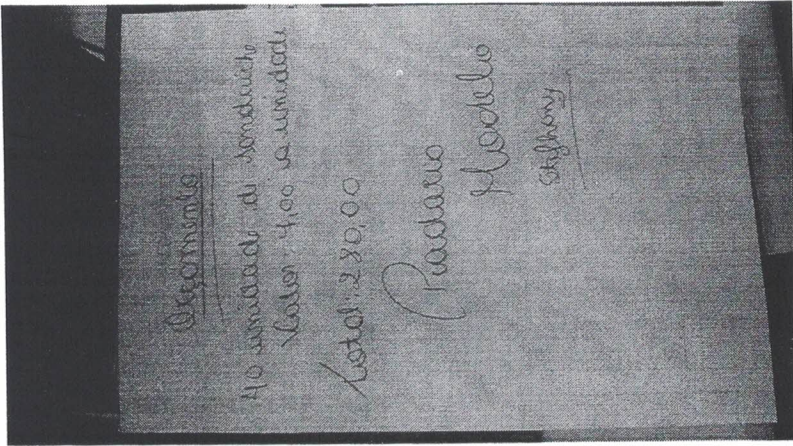 Orçamento
40 unidade di sanduiche
Valor 7,00 a unidade
Total: 280,00
Padaria
Modelo
Stefhany